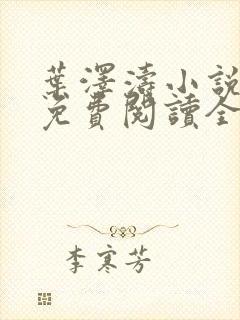 葉澤濤小說
免費閱讀全
李寒芳